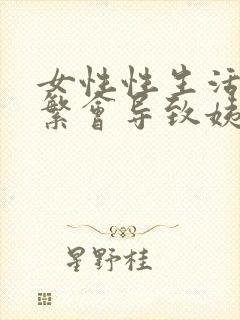 女性性生活
繁会导致姨
星野桂